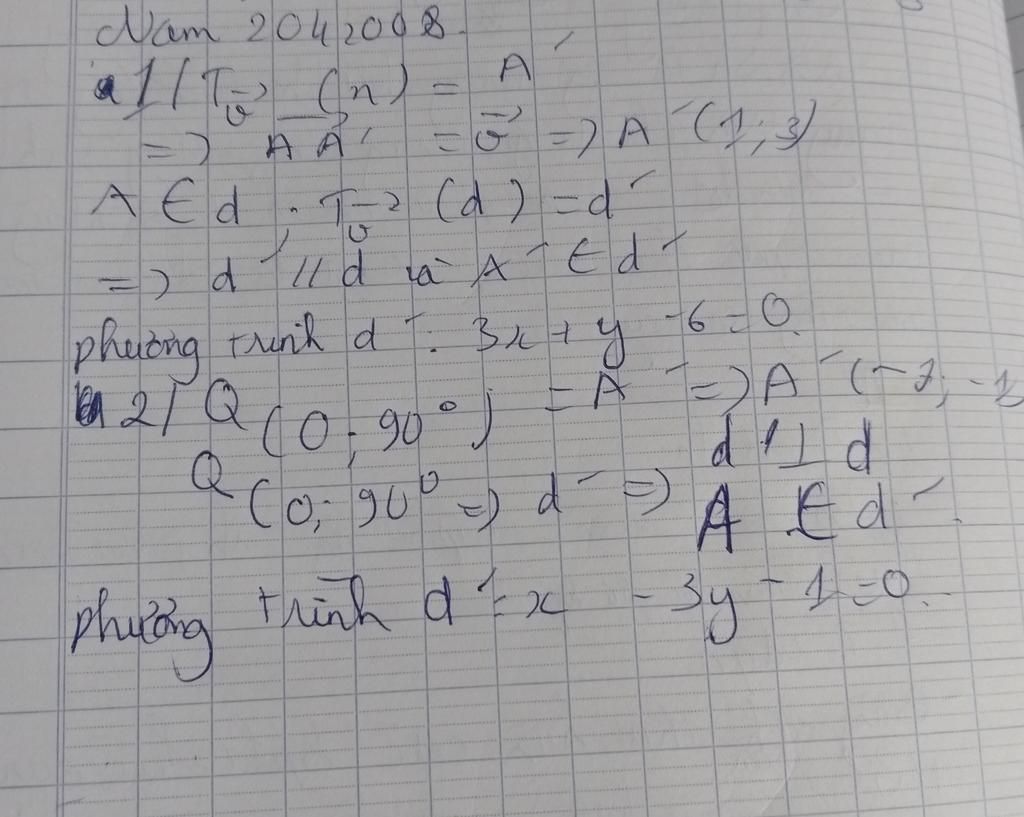 Nam 2042008.
a1/ T_v⃗ (n) = A'
=> AA'⃗ = v⃗ => A'(1;3)
A ∈ d. T_v⃗ (d) = d'
=> d' // d và A' ∈ d'
phương trình d': 3x + y - 6 = 0.
2/ Q (0; 90°) = A' => A' (-2; -1
Q (0; 90° => d' => d' ⊥ d
A ∈ d'.
phưởng trình d': x - 3y - 1 = 0.